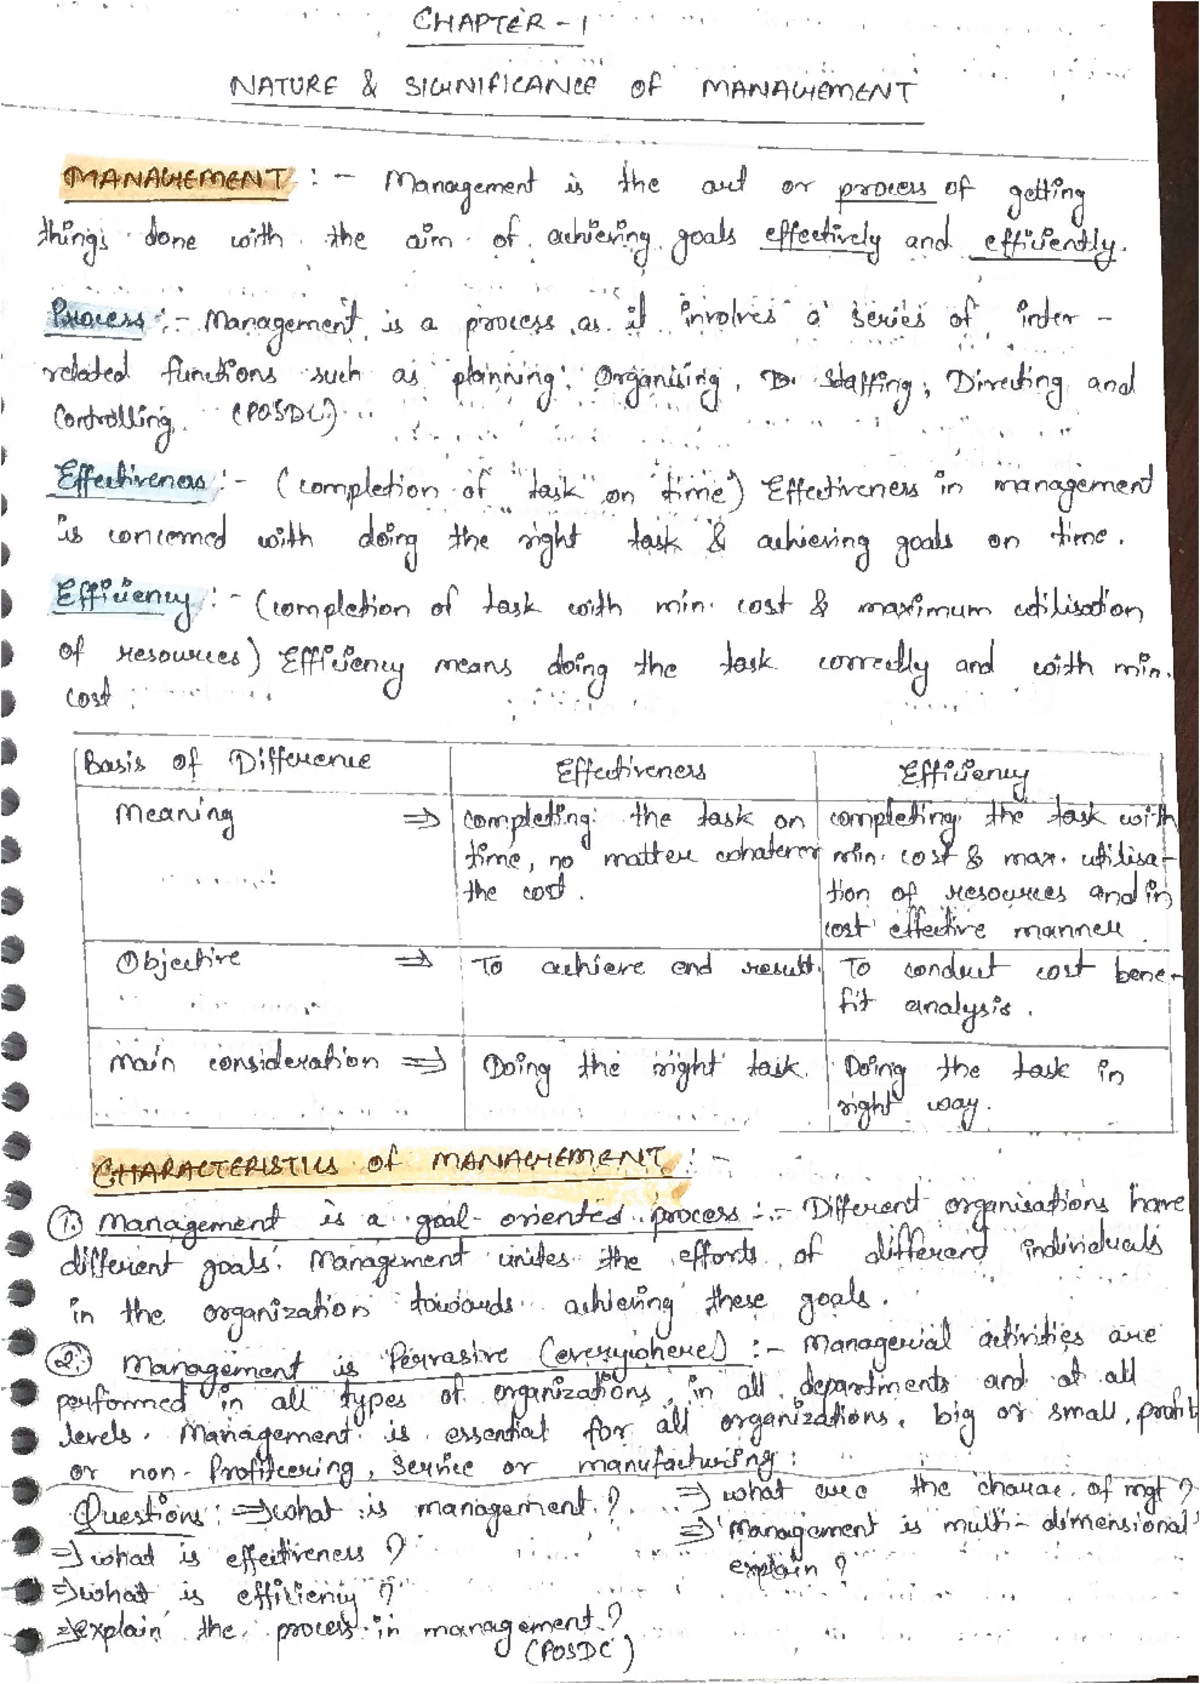 CHAPTER - 1
NATURE & SIGNIFICANCE OF MANAGEMENT
MANAGEMENT :- Management is the art or process of getting
things done with the aim of achieving goals effectively and efficiently.
Process :- Management is a process as it involves a series of inter -
related functions such as planning, Organising, D. Staffing, Directing and
Controlling. (POSDC)
Effectiveness :- (completion of "task" on "time") Effectiveness in management
is concerned with doing the right task & achieving goals on time.
Efficiency :- (completion of task with min. cost & maximum utilisation
of resources) Efficiency means doing the task correctly and with min.
cost.
Basis of Difference Effectiveness Efficiency
Meaning ⇒ completing the task on time, no matter whatever the cost. completing the task with min. cost & max. utilisa-tion of resources and in cost effective manner.
Objective ⇒ To achieve end result. To conduct cost bene-fit analysis.
Main consideration ⇒ Doing the right task. Doing the task in right way.
CHARACTERISTICS OF MANAGEMENT :-
1. Management is a goal-oriented process :- Different organisations have
different goals. Management unites the efforts of different individuals
in the organization towards achieving these goals.
2. Management is Pervasive (everywhere) :- Managerial activities are
performed in all types of organizations, in all departments and at all
levels. Management is essential for all organizations, big or small, profit
or non-Profiteering, Service or manufacturing.
Questions: ⇒ what is management? ⇒ what are the charac. of mgt?
⇒ what is effectiveness? ⇒ 'Management is multi-dimensional' explain?
⇒ what is efficiency?
⇒ explain the process in management?
(POSDC)